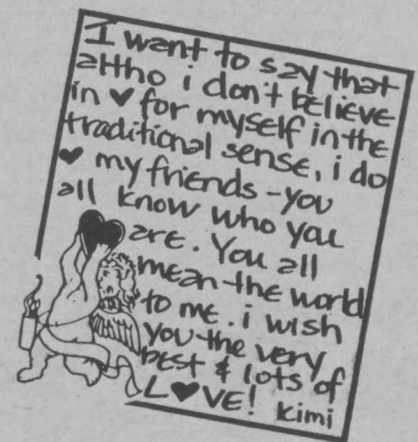 I want to say that
altho i don't believe
in ♥ for myself in the
traditional sense, i do
♥ my friends-you
all know who you
are. You all
mean the world
to me. i wish
you the very
best & lots of
L♥VE! kimi